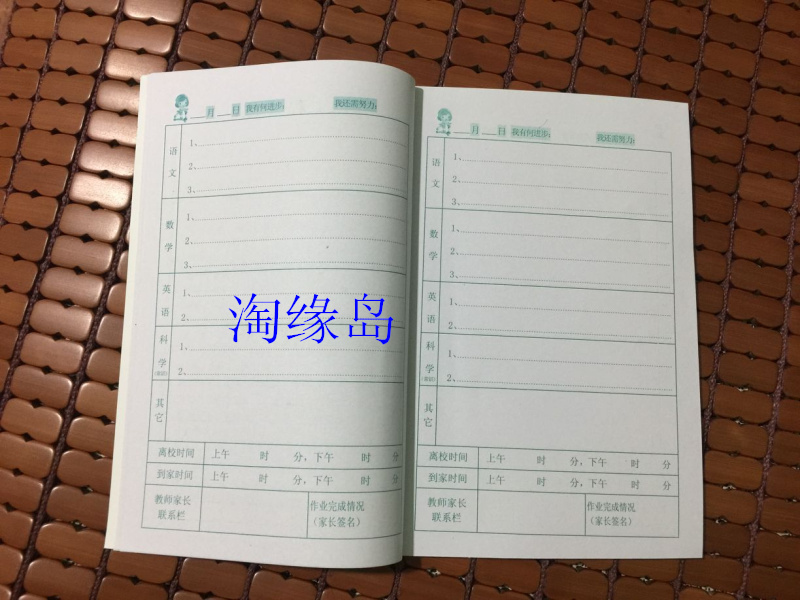 月 日 我有何进步: 我还需努力:
语文
1、
2、
3、
数学
1、
2、
3、
英语
1、
2、
科学
1、
2、
其它
离校时间 上午 时 分,下午 时 分
到家时间 上午 时 分,下午 时 分
教师家长联系栏
作业完成情况
(家长签名)
淘缘岛
月 日 我有何进步: 我还需努力:
语文
1、
2、
3、
数学
1、
2、
3、
英语
1、
2、
科学
1、
2、
其它
离校时间 上午 时 分,下午 时 分
到家时间 上午 时 分,下午 时 分
教师家长
联系栏
作业完成情况
(家长签名)